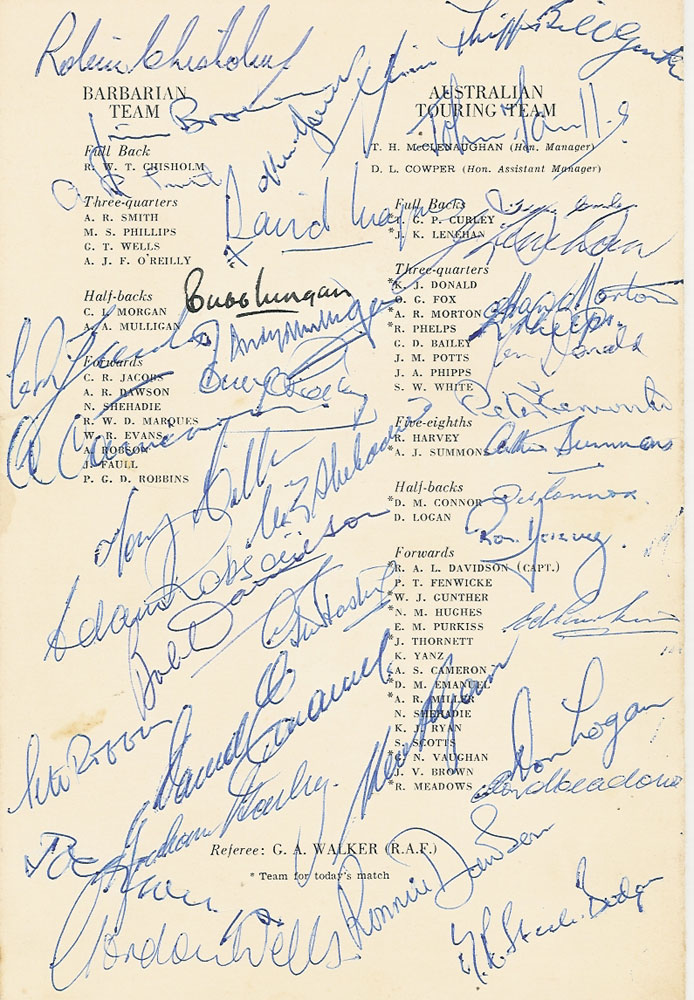 Robin Chisholm
Bill Gunther
BARBARIAN
TEAM
Jim Brown
Full Back
R. W. T. CHISHOLM
Three-quarters
A. R. SMITH
M. S. PHILLIPS
G. T. WELLS
A. J. F. O'REILLY
David
Half-backs
C. I. MORGAN
A. A. MULLIGAN
Andy Mulligan
Forwards
C. R. JACOBS
A. R. DAWSON
N. SHEHADIE
R. W. D. MARQUES
W. R. EVANS
A. ROBSON
J. FAULL
P. G. D. ROBBINS
AUSTRALIAN
TOURING TEAM
John Faull
T. H. McCLENAUGHAN (Hon. Manager)
D. L. COWPER (Hon. Assistant Manager)
Full Backs
*T. G. P. CURLEY
*J. K. LENEHAN
Terry Curley
Lenehan
Three-quarters
*K. J. DONALD
O. G. FOX
*A. R. MORTON
*R. PHELPS
G. D. BAILEY
J. M. POTTS
J. A. PHIPPS
S. W. WHITE
Alan Morton
R Phelps.
Ken Donald
Peter Fenwicke
Five-eighths
R. HARVEY
*A. J. SUMMONS
Arthur Summons
Half-backs
*D. M. CONNOR
D. LOGAN
Des Connor.
Ron Harvey.
Forwards
*R. A. L. DAVIDSON (CAPT.)
P. T. FENWICKE
*W. J. GUNTHER
*N. M. HUGHES
E. M. PURKISS
*J. THORNETT
K. YANZ
*A. S. CAMERON
*D. M. EMANUEL
*A. R. MILLER
N. SHEHADIE
K. J. RYAN
S. SCOTTS
*G. N. VAUGHAN
J. V. BROWN
*R. MEADOWS
Tony Miller
N. Shehadie
Adam Robson
Bob Davidson
Pete Robbins
David Emanuel
Don Logan
Rod Meadows
Referee: G. A. WALKER (R.A.F.)
* Team for today's match
Gordon Wells
Ronnie Dawson